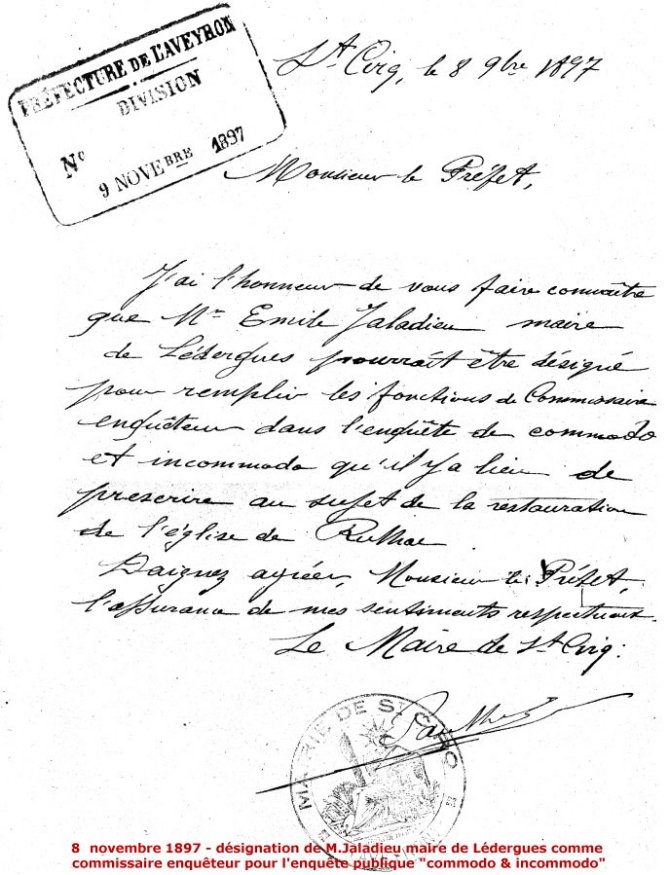 PRÉFECTURE DE L'AVEYRON
DIVISION
N°
9 NOVEBRE 1897
St Cirq, le 8 9bre 1897
Monsieur le Préfet,
J'ai l'honneur de vous faire connaître
que Mr Emile Jaladieu maire
de Lédergues pourrait être désigné
pour remplir les fonctions de Commissaire
enquêteur dans l'enquête de commodo
et incommodo qu'il y a lieu de
prescrire au sujet de la restauration
de l'église de
Daignez agréer, Monsieur le Préfet,
l'assurance de mes sentiments respectueux.
Le Maire de St Cirq:
MAIRIE DE ST CIRQ
AVEYRON
8 novembre 1897 - désignation de M.Jaladieu maire de Lédergues comme
commissaire enquêteur pour l'enquête publique "commodo & incommodo"